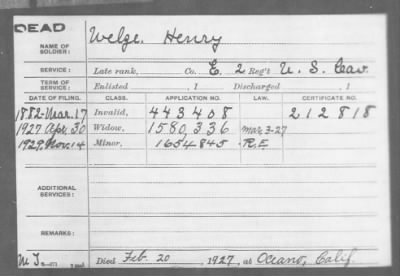 DEAD
NAME OF SOLDIER: Welge. Henry
SERVICE: Late rank, Co. E. 2 Reg't U. S. Cav.
TERM OF SERVICE: Enlisted , 1 Discharged , 1
DATE OF FILING. CLASS. APPLICATION NO. LAW. CERTIFICATE NO.
1882-Mar. 17 Invalid, 443408 212818
1927 Apr. 30 Widow, 1580,336 Mar 3-27
1929, Nov. 14 Minor, 1654845 R.E
ADDITIONAL SERVICES:
REMARKS:
Died Feb. 20, 1927, at Oceano, Calif.